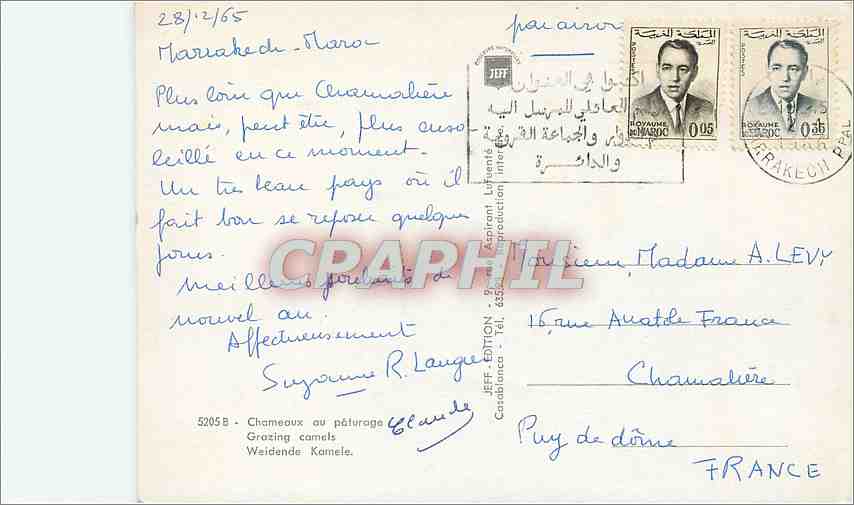 28/12/65
Marrakech - Maroc
Plus loin que Chamalière
mais, peut être, plus enso-
leillé en ce moment.
Un très beau pays où il
fait bon se reposer quelques
jours.
Meilleurs souhaits de
nouvel an.
Affectueusement
Suzanne R.
Claude
5205 B - Chameaux au pâturage
Grazing camels
Weidende Kamele.
JEFF
JEFF-EDITION - 9, rue Aspirant Lafuente
Casablanca - Tél. Reproduction interdite
par avion
اكتبوا في العنوان
العائلي للمرسل اليه
والجماعة القروية
والدائرة
المملكة المغربية
POSTES
ROYAUME
DU MAROC 0.05
المملكة المغربية
POSTES
ROYAUME
DU MAROC
MARRAKECH PPAL
Monsieur, Madame A. LEVY
16, rue Anatole France
Chamalière
Puy de dôme
FRANCE
CPAPHIL